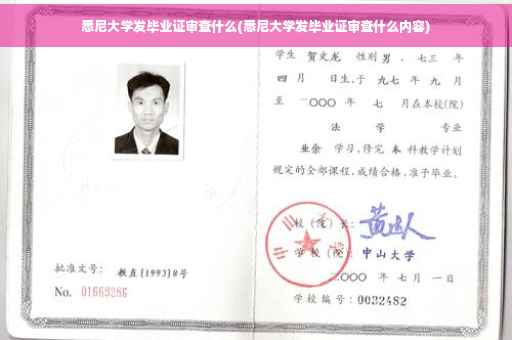 悉尼大学发毕业证审查什么(悉尼大学发毕业证审查什么内容)
学生 贺文龙 性别 男 、七三 年
四 月 日生,于 九七 年 九 月
至 二〇〇〇 年 七 月在本校(院)
法 学 专业
业余 学习,修完 本 科教学计划
规定的全部课程,成绩合格,准予毕业。
校(院)长:
学校(院): 中山大学
二〇〇〇 年 七 月 一 日
学校编号: 0032482
批准文号: 教直(1993)8号
No. 01669286